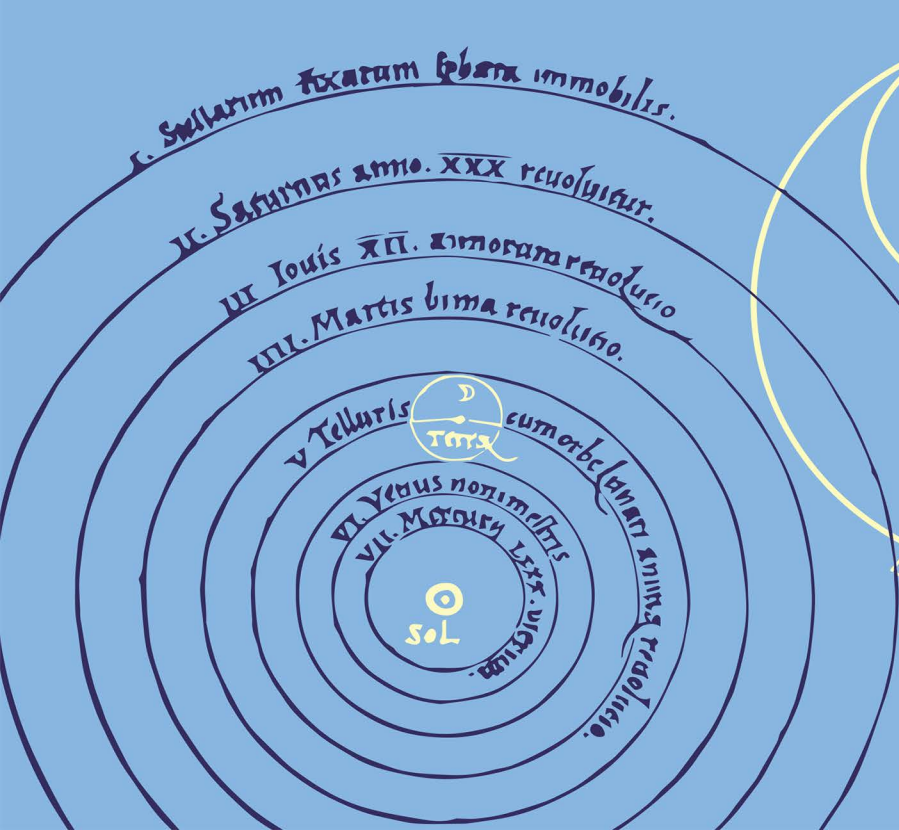 I. Stellarum fixarum sphæra immobilis.
II. Saturnus anno. XXX reuoluitur.
III Iouis XII. annorum reuolutio
IIII. Martis bima reuolutio.
V Telluris cum orbe lunari annua reuolutio.
Terra
VI. Venus nonimestris
VII. Mercurij LXXX. dierum.
SOL